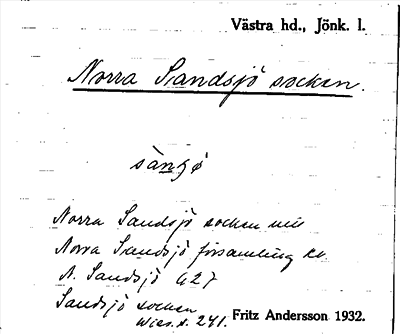 Västra hd., Jönk. l.
Norra Sandsjö socken.
Norra Sandsjö socken
Norra Sandsjö församling
N. Sandsjö 427
Sandsjö socken
Wies. s. 241. Fritz Andersson 1932.